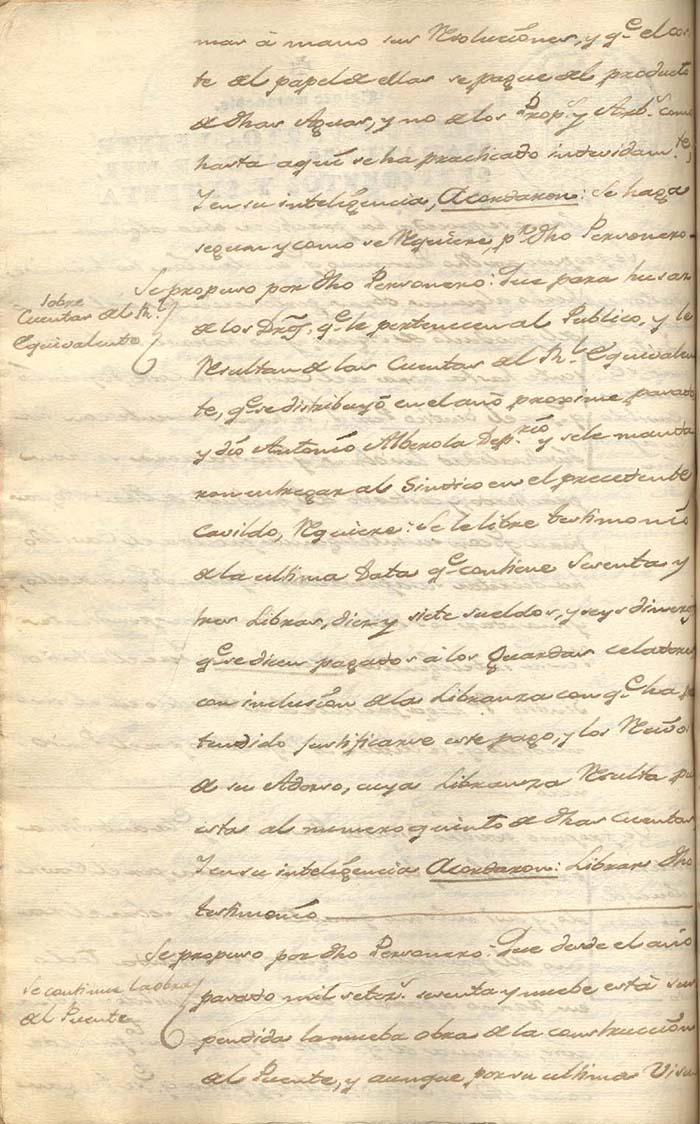 mas à mano sus Resoluciones, y q.e el cos-
te del papel de ellas se pague del producto
de dhas Aguas, y no de los Prop.s y Arb.s como
hasta aqui se ha practicado indevidam.te;
Y en su inteligencia, Acordaron: Se haga
segun y como se requiere, p.r dho Personero
Sobre
Cuentas del R.l
Equivalente
Se propuso por dho Personero: Que para husar
de los Dros. q.e le pertenecen al Publico, y le
Resultan de las Cuentas del R.l Equivalen
te, q.e se distribuyó en el año proxime pasado
y dió Antonio Alberola Dep.rio y se le manda
ron entregar al Sindico en el precedente
Cavildo, Requiere: Se le libre testimonio
de la ultima Data q.e contiene Sesenta y
tres Libras, diez y siete sueldos, y seys dineros
q.e se dicen pagados à los Guardas celadores
con inclusion de la Libranza con q.e ha pre
tendido justificarse este pago, y los Recivos
de su Adorso, cuya Libranza Resulta pu
esta al numero quinto de dhas Cuentas
Y en su inteligencia Acordaron: Librar dho
testimonio
Se continue la obra
del Puente
Se propuso por dho Personero: Que desde el año
pasado mil setec.s sesenta y nuebe està sus
pendida la nueba obra de la construccion
del Puente, y aunque por su ultima Visu